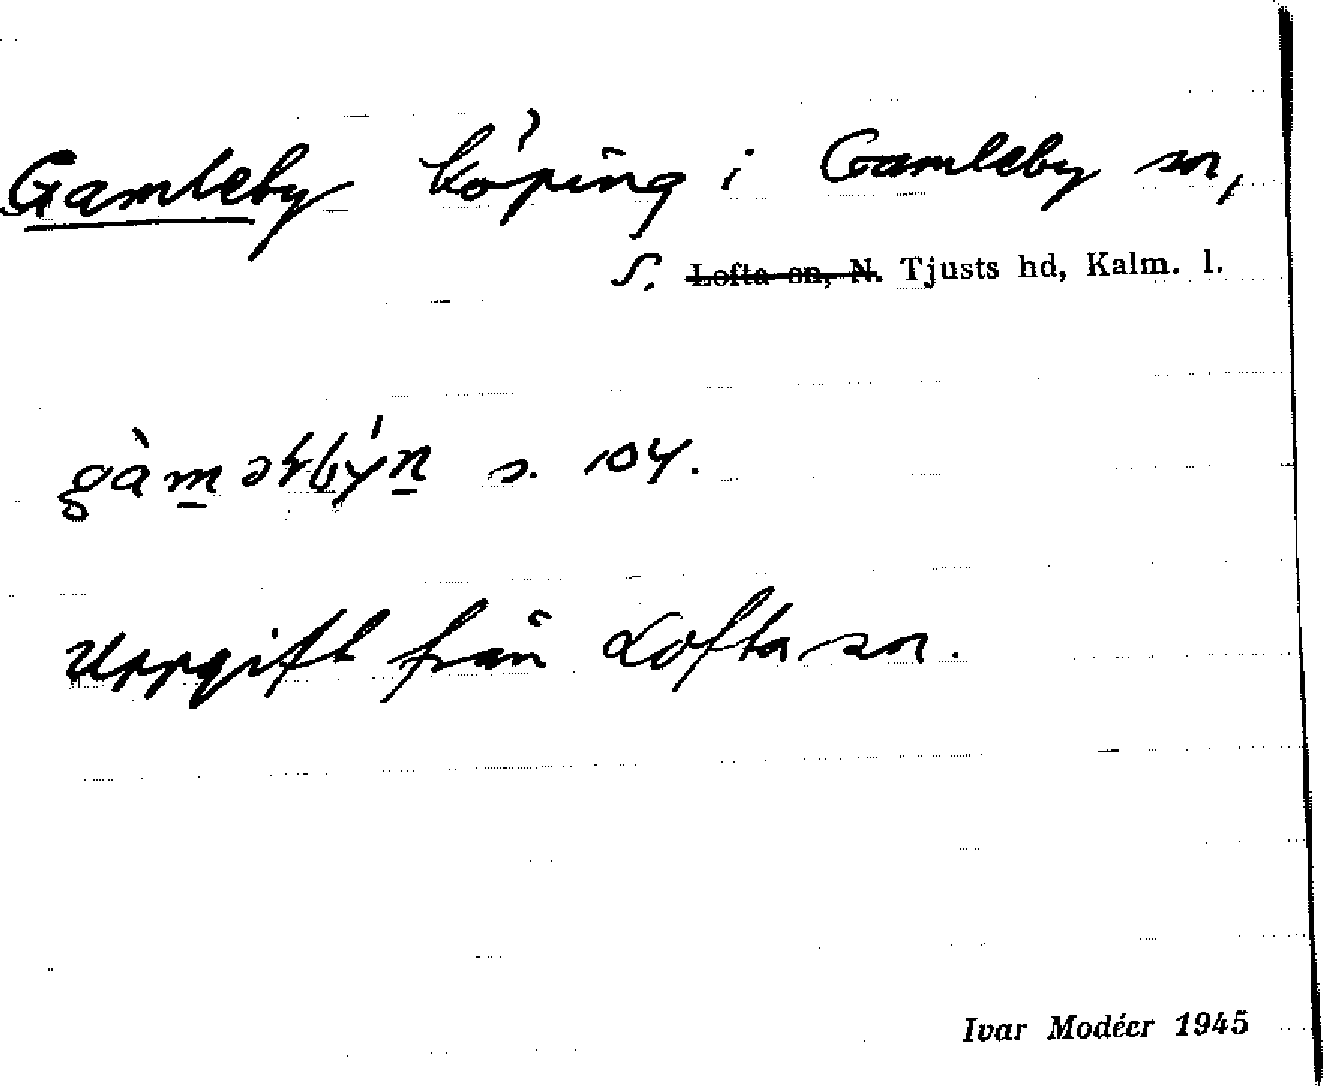 Gamleby köping i Gamleby sn,
S. ~~Lofta sn, N.~~ Tjusts hd, Kalm. l.
s. 104.
Uppgift från Lofta sn.
Ivar Modéer 1945